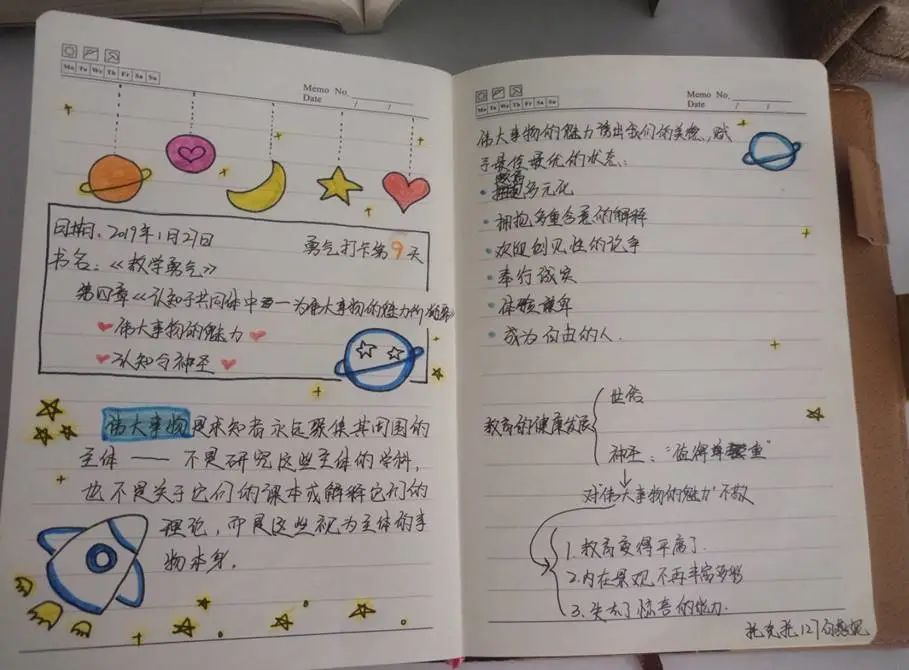 Mo Tu We Th Fr Sa Su
Memo No.
Date / /
日期：2019年1月27日
勇气打卡第9天
书名：《教学勇气》
第四章《认知于共同体中——为伟大事物的魅力所
伟大事物的魅力
认知与神圣
伟大事物是求知者永远聚集其周围的
主体——不是研究这些主体的学科，
也不是关于它们的课本或解释它们的
理论，而是这些视为主体的事
物本身。
Mo Tu We Th Fr Sa Su
Memo No.
Date / /
伟大事物的魅力诱出我们的美德，赋
予最佳最优的状态：
多元化
拥抱多重含意的解释
欢迎创见性的论争
奉行诚实
体验谦卑
成为自由的人.
教育的健康发展
世俗
神圣："值得尊重"
对"伟大事物的魅力"不敬
1.教育变得平庸了.
2.内在景观不再丰富多彩
3.失去了惊奇的能力.